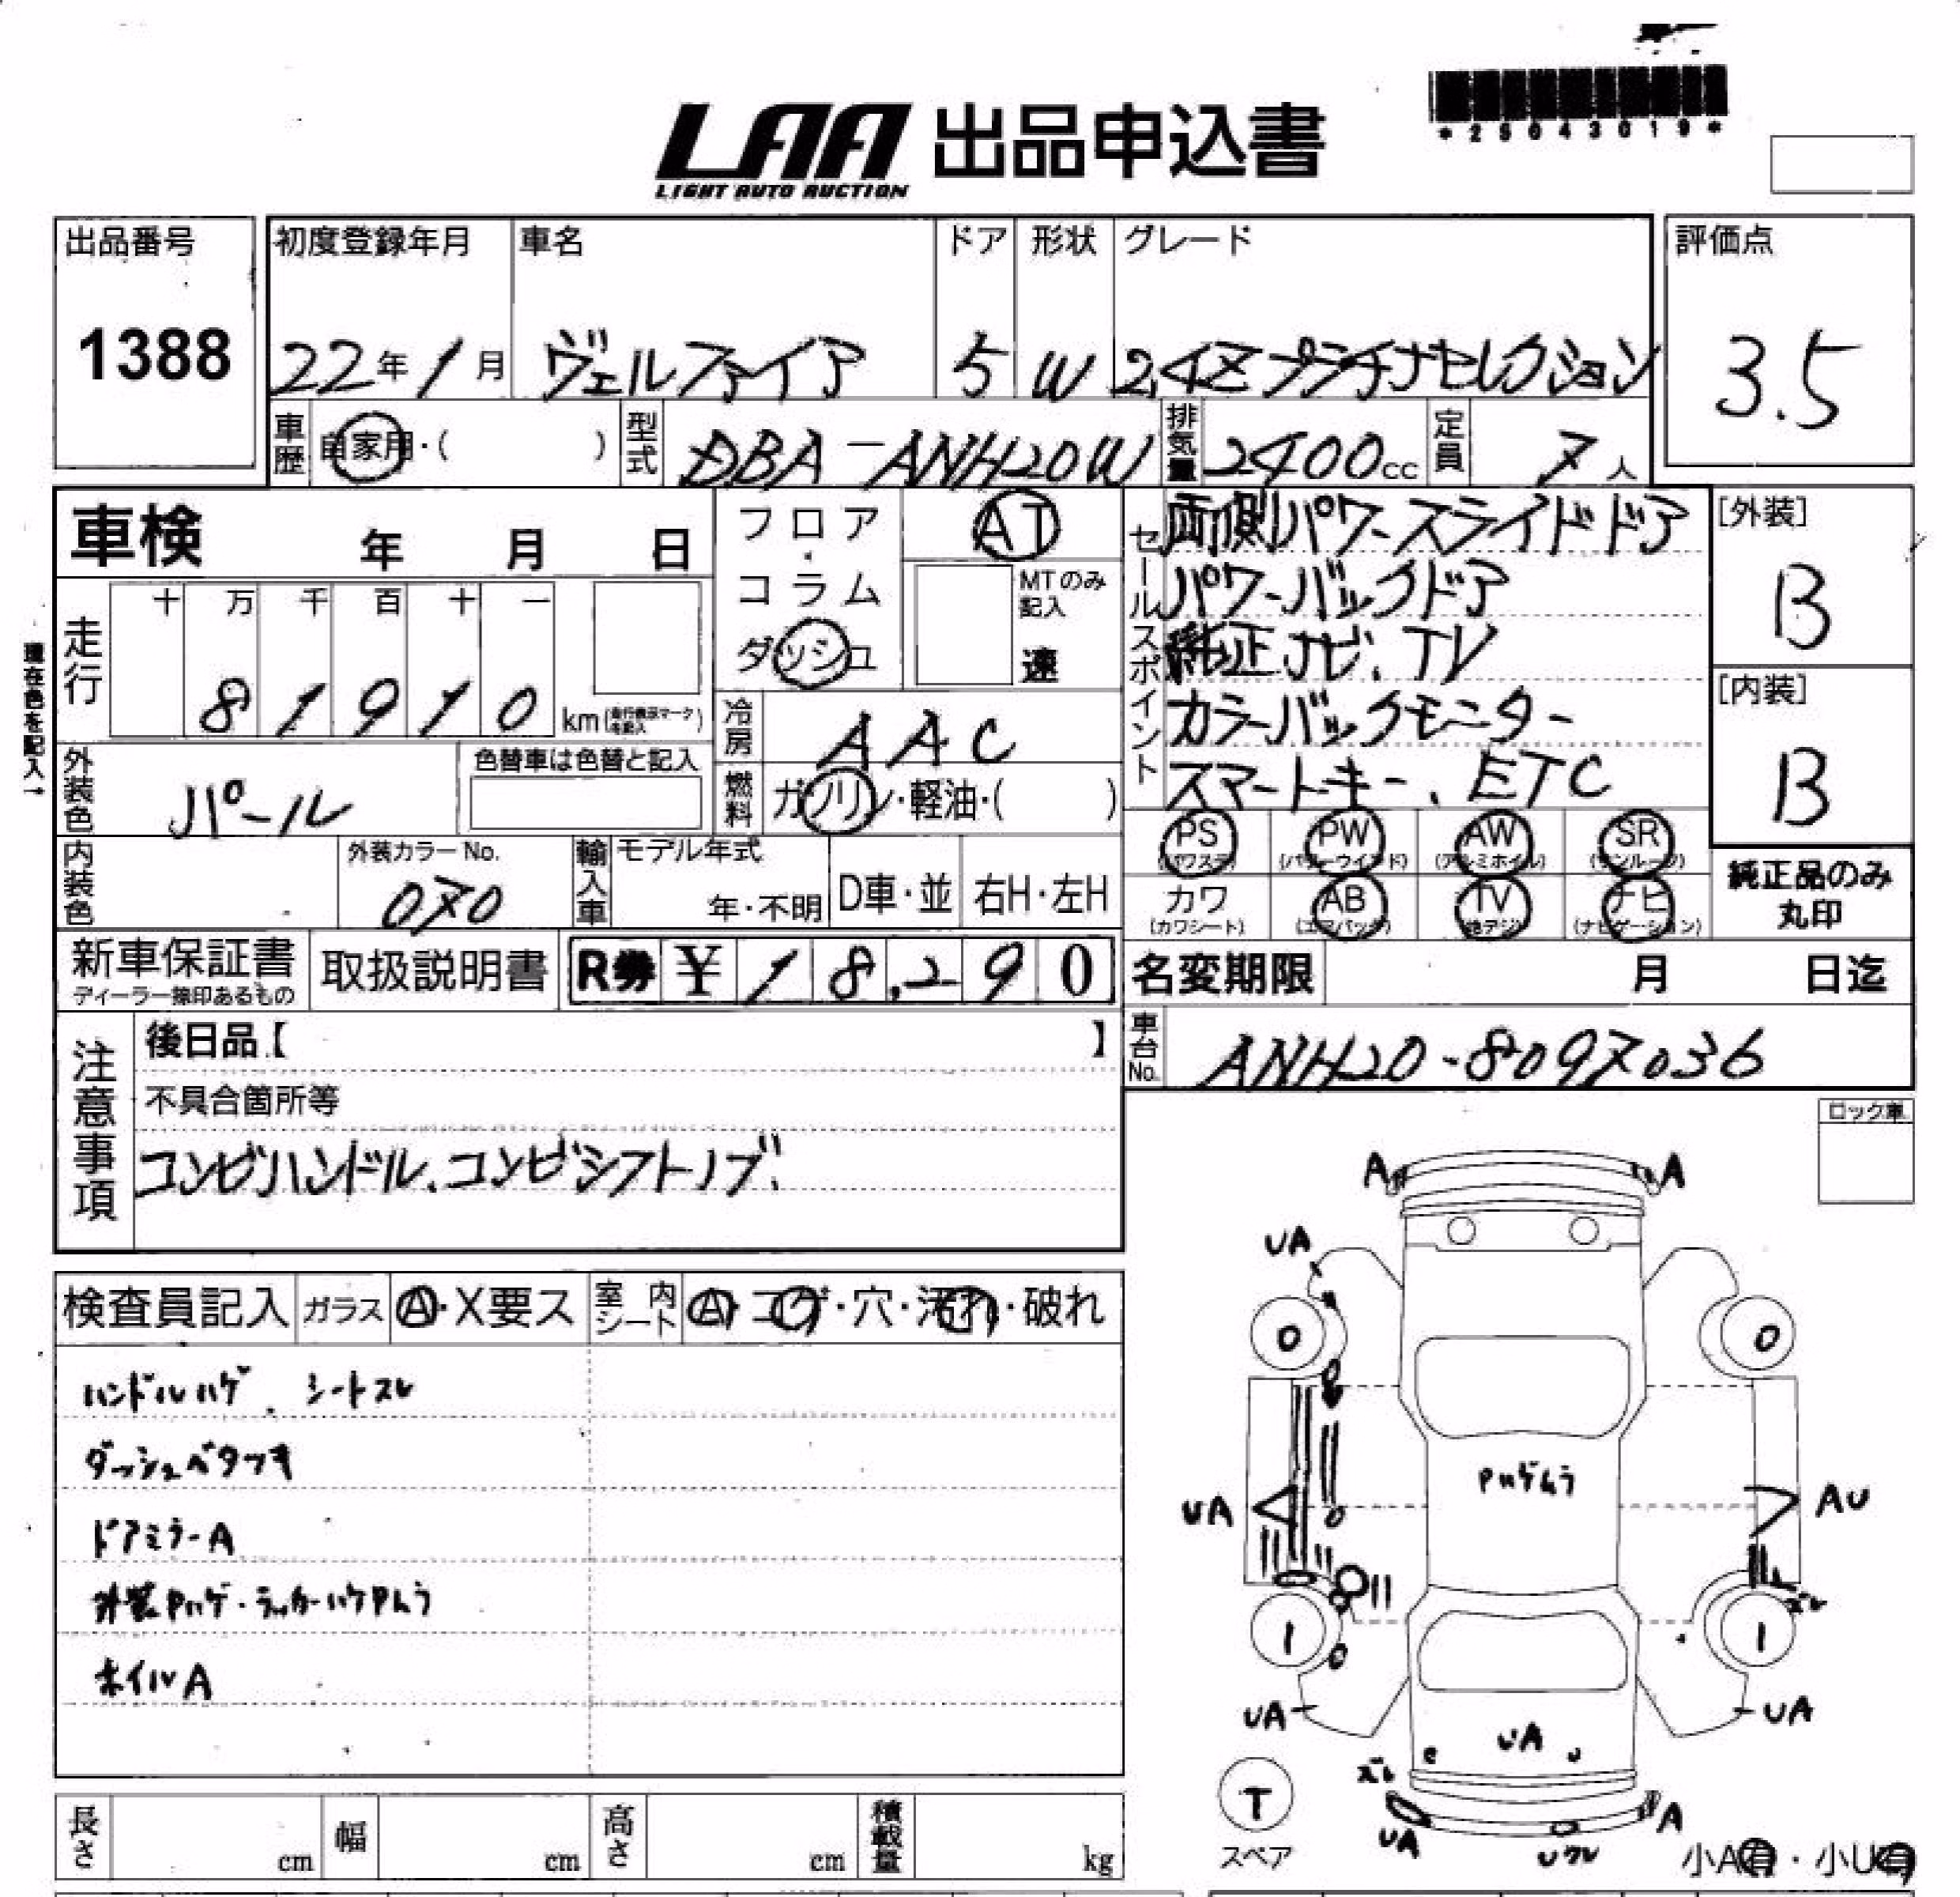 *25043019*
LAA 出品申込書
LIGHT AUTO AUCTION
出品番号
1388
初度登録年月
22年1月
車名
ヴェルファイア
ドア
5
形状
W
グレード
2.4Zプラチナセレクション
評価点
3.5
車歴
自家用・( )
型式
DBA-ANH20W
排気量
2400cc
定員
7人
車検 年 月 日
フロア・コラム
ダッシュ
AT
MTのみ記入
速
セールスポイント
両側パワースライドドア
パワーバックドア
純正ナビ、TV
カラーバックモニター
スマートキー、ETC
[外装]
B
[内装]
B
現在色を記入→
走行
十 万 千 百 十 一
8 1 9 1 0 km
冷房
AAC
外装色
パール
色替車は色替と記入
燃料
ガソリン・軽油・( )
PS PW AW SR
(パワステ) (パワーウインド) (アルミホイル) (サンルーフ)
カワ AB TV ナビ
(カワシート) (エアバック) (地デジ) (ナビゲーション)
純正品のみ
丸印
内装色
外装カラーNo.
070
輸入車
モデル年式
年・不明
D車・並
右H・左H
新車保証書
ディーラー捺印あるもの
取扱説明書
R券 ¥18,290
名変期限 月 日迄
注意事項
後日品【 】
車台No.
ANH20-8097036
不具合箇所等
コンビハンドル、コンビシフトノブ、
ロック車
検査員記入
ガラス
A・X要ス
室内シート
A・コゲ・穴・汚れ・破れ
ハンドルハゲ、シートスレ
ダッシュベタツキ
ドアミラーA
外装Pハゲ・ラッカーハケPムラ
ホイルA
A A
UA
0 0
Pハゲムラ
UA AU
ズレ
1 1
UA UA
UA
ズレ
T
スペア
UA
Uワレ
A
小A有・小U有
長さ cm
幅 cm
高さ cm
積載量 kg